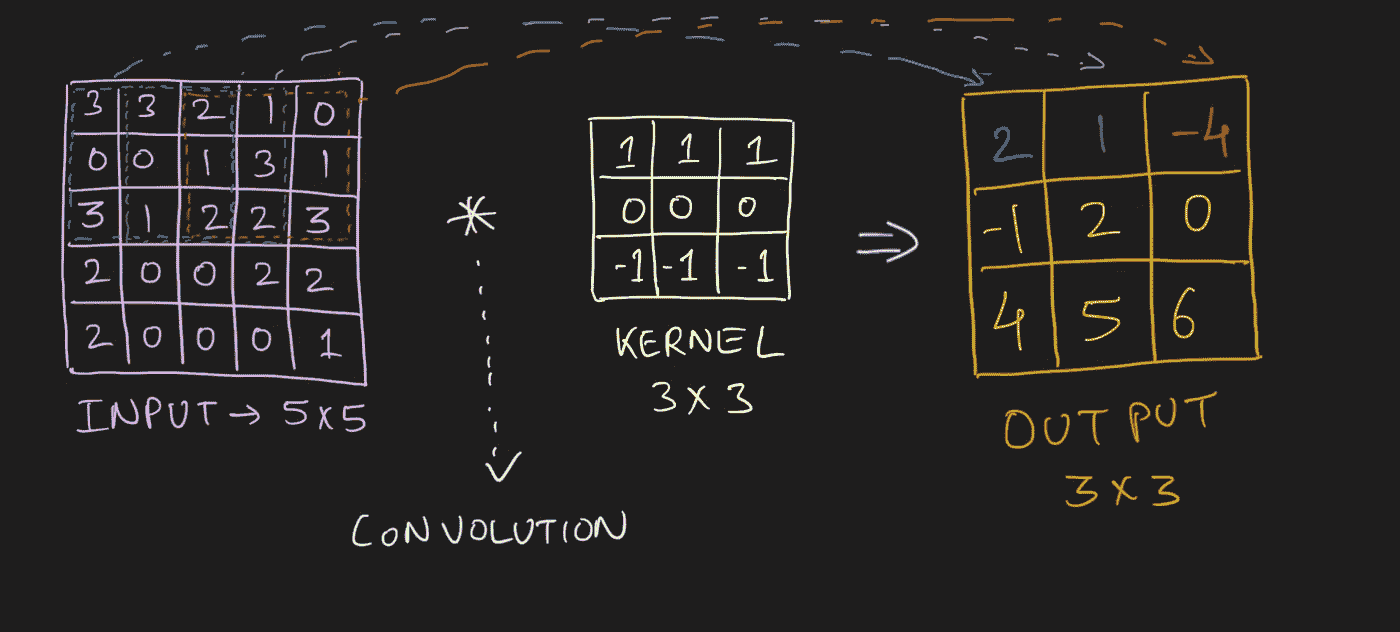 3 3 2 1 0
0 0 1 3 1
3 1 2 2 3
2 0 0 2 2
2 0 0 0 1
INPUT → 5x5
*
CONVOLUTION
1 1 1
0 0 0
-1 -1 -1
KERNEL
3 x 3
⇒
2 1 -4
-1 2 0
4 5 6
OUTPUT
3 x 3